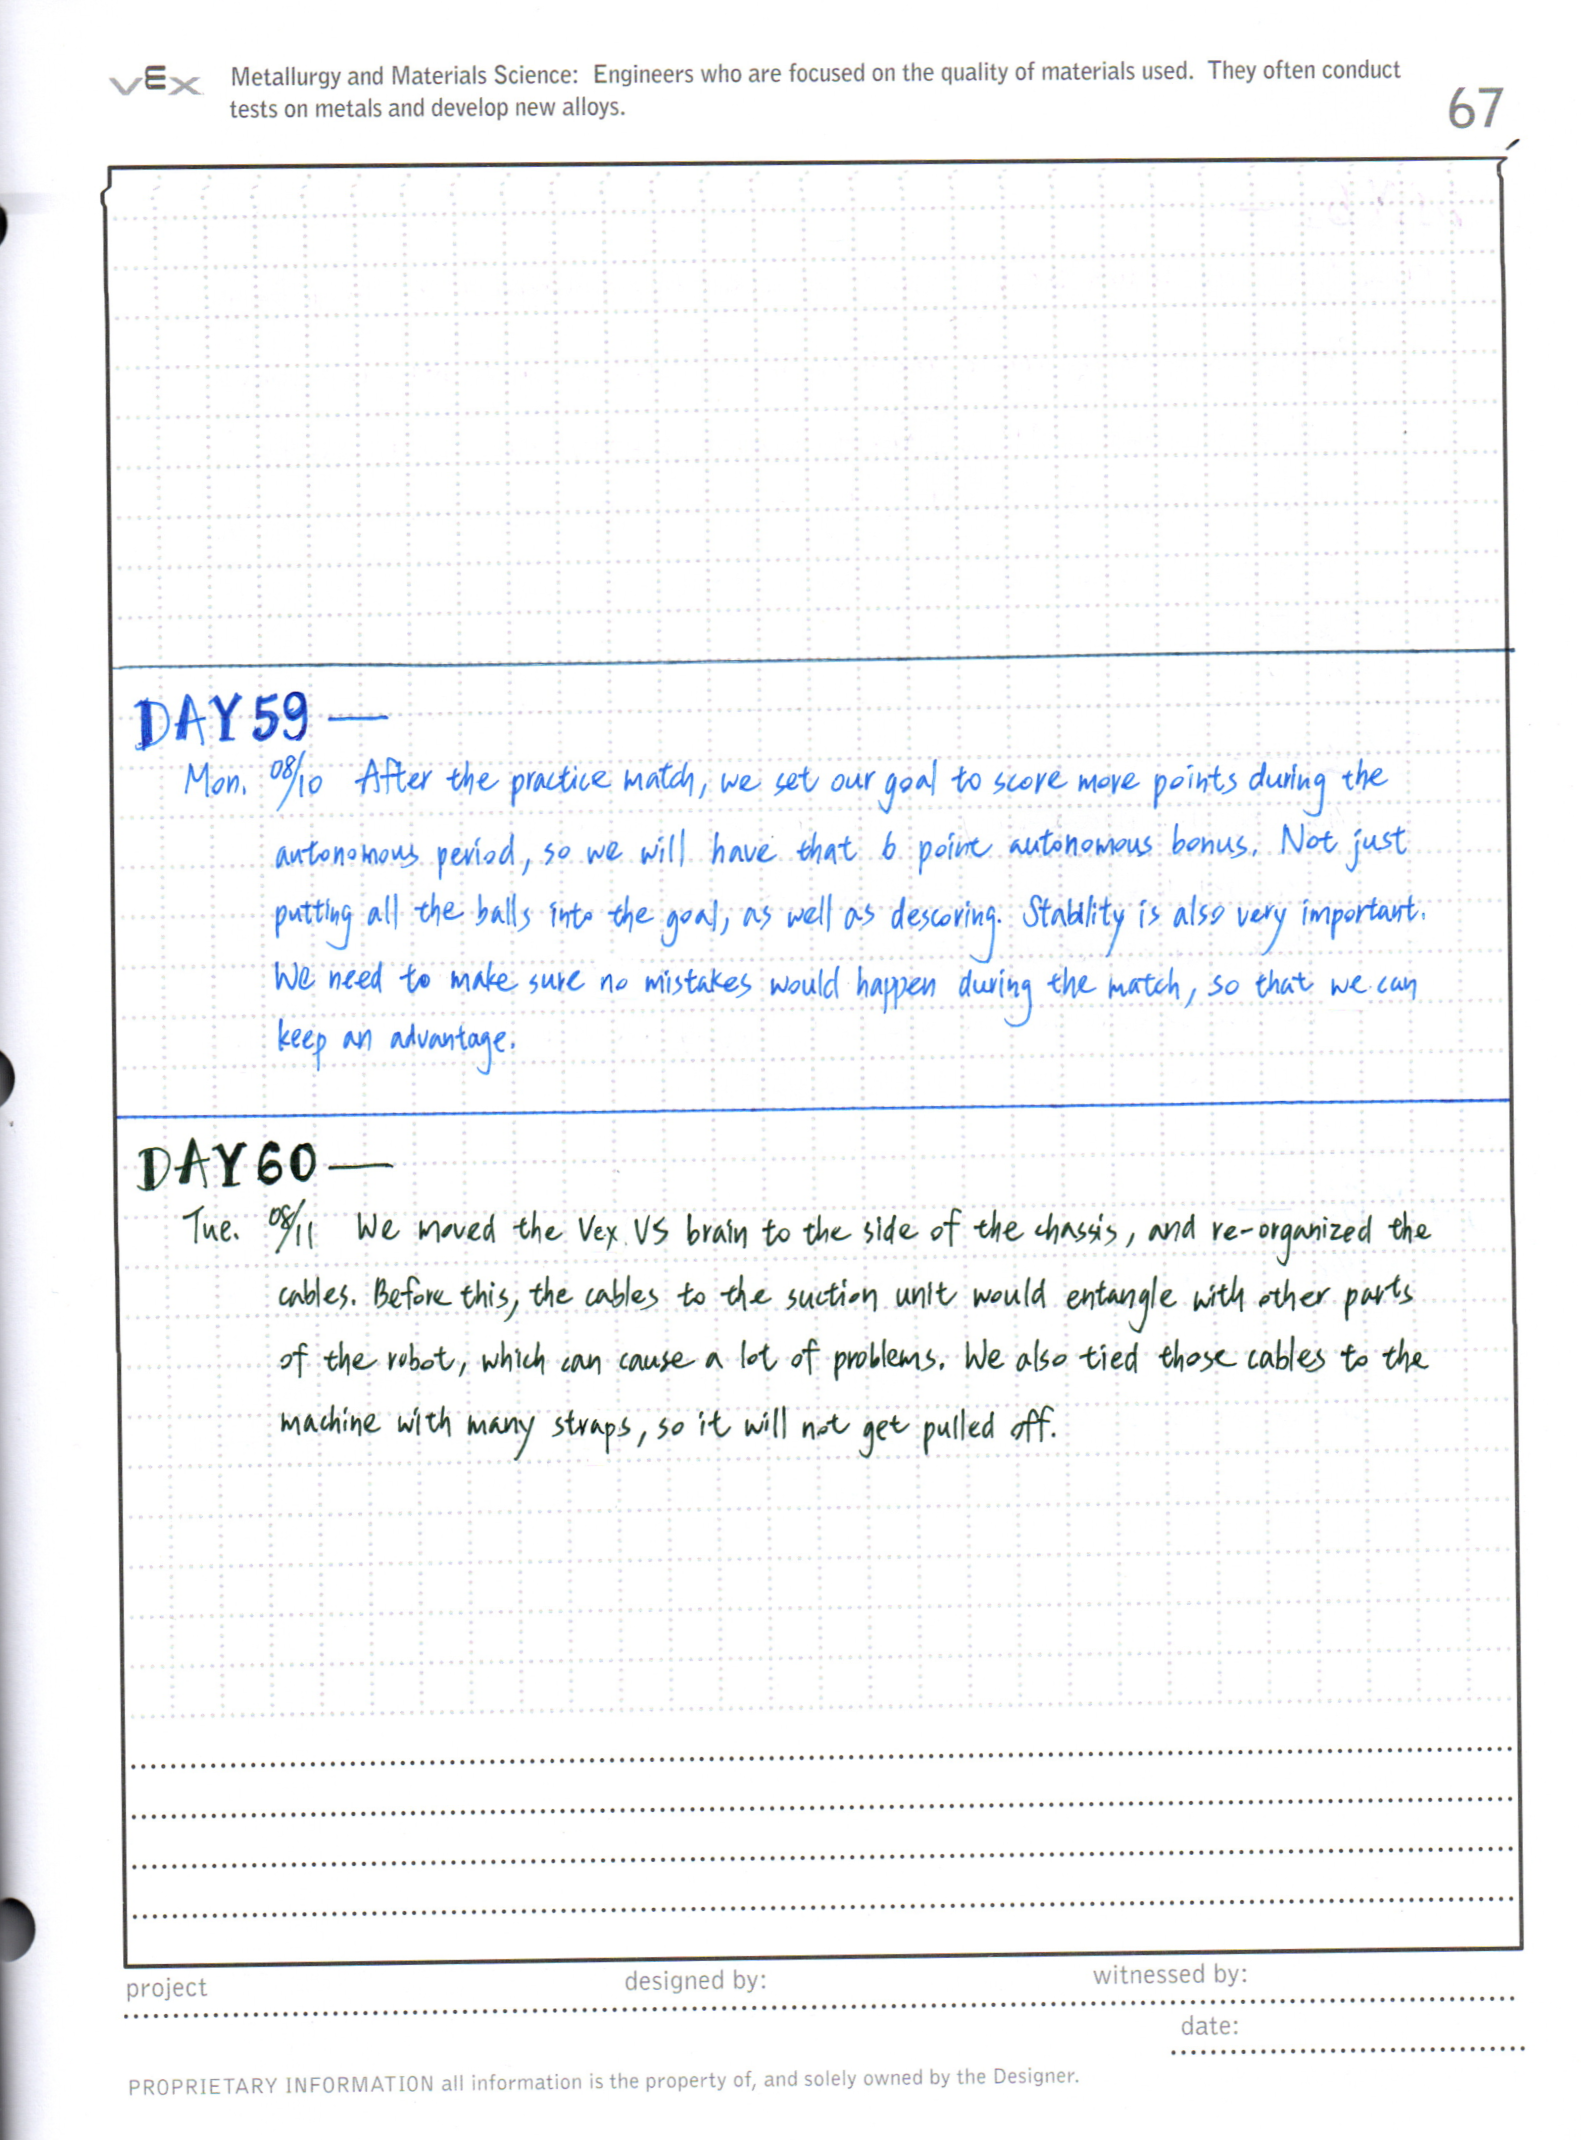 VEX
Metallurgy and Materials Science: Engineers who are focused on the quality of materials used. They often conduct
tests on metals and develop new alloys.
67
DAY 59 —
Mon. 08/10 After the practice match, we set our goal to score more points during the
autonomous period, so we will have that 6 point autonomous bonus. Not just
putting all the balls into the goal, as well as descoring. Stability is also very important.
We need to make sure no mistakes would happen during the match, so that we can
keep an advantage.
DAY 60 —
Tue. 08/11 We moved the Vex V5 brain to the side of the chassis, and re-organized the
cables. Before this, the cables to the suction unit would entangle with other parts
of the robot, which can cause a lot of problems. We also tied those cables to the
machine with many straps, so it will not get pulled off.
project designed by: witnessed by:
date:
PROPRIETARY INFORMATION all information is the property of, and solely owned by the Designer.